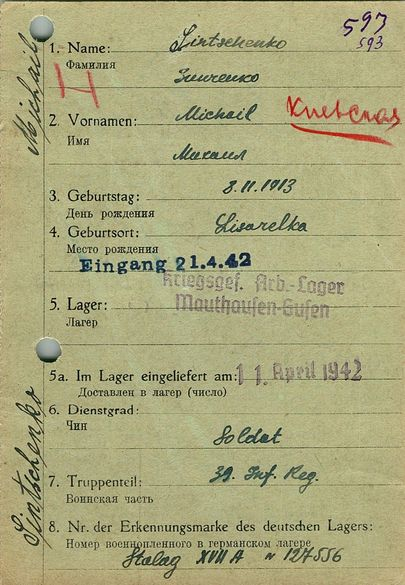 597
593
1. Name: Sintschenko
Фамилия
Зинченко
2. Vornamen: Michail
Киевская
Имя
Михаил
3. Geburtstag: 8.11.1913
День рождения
4. Geburtsort: Lisarelka
Место рождения
Eingang 21.4.42
Kriegsgef. Arb.-Lager
Mauthausen-Gusen
5. Lager:
Лагер
5a. Im Lager eingeliefert am: 11. April 1942
Доставлен в лагер (число)
6. Dienstgrad:
Чин
Soldat
7. Truppenteil: 39. Inf. Reg.
Воинская часть
8. Nr. der Erkennungsmarke des deutschen Lagers:
Номер военнопленного в германском лагере
Stalag XVII A N 127556
Sintschenko Michail